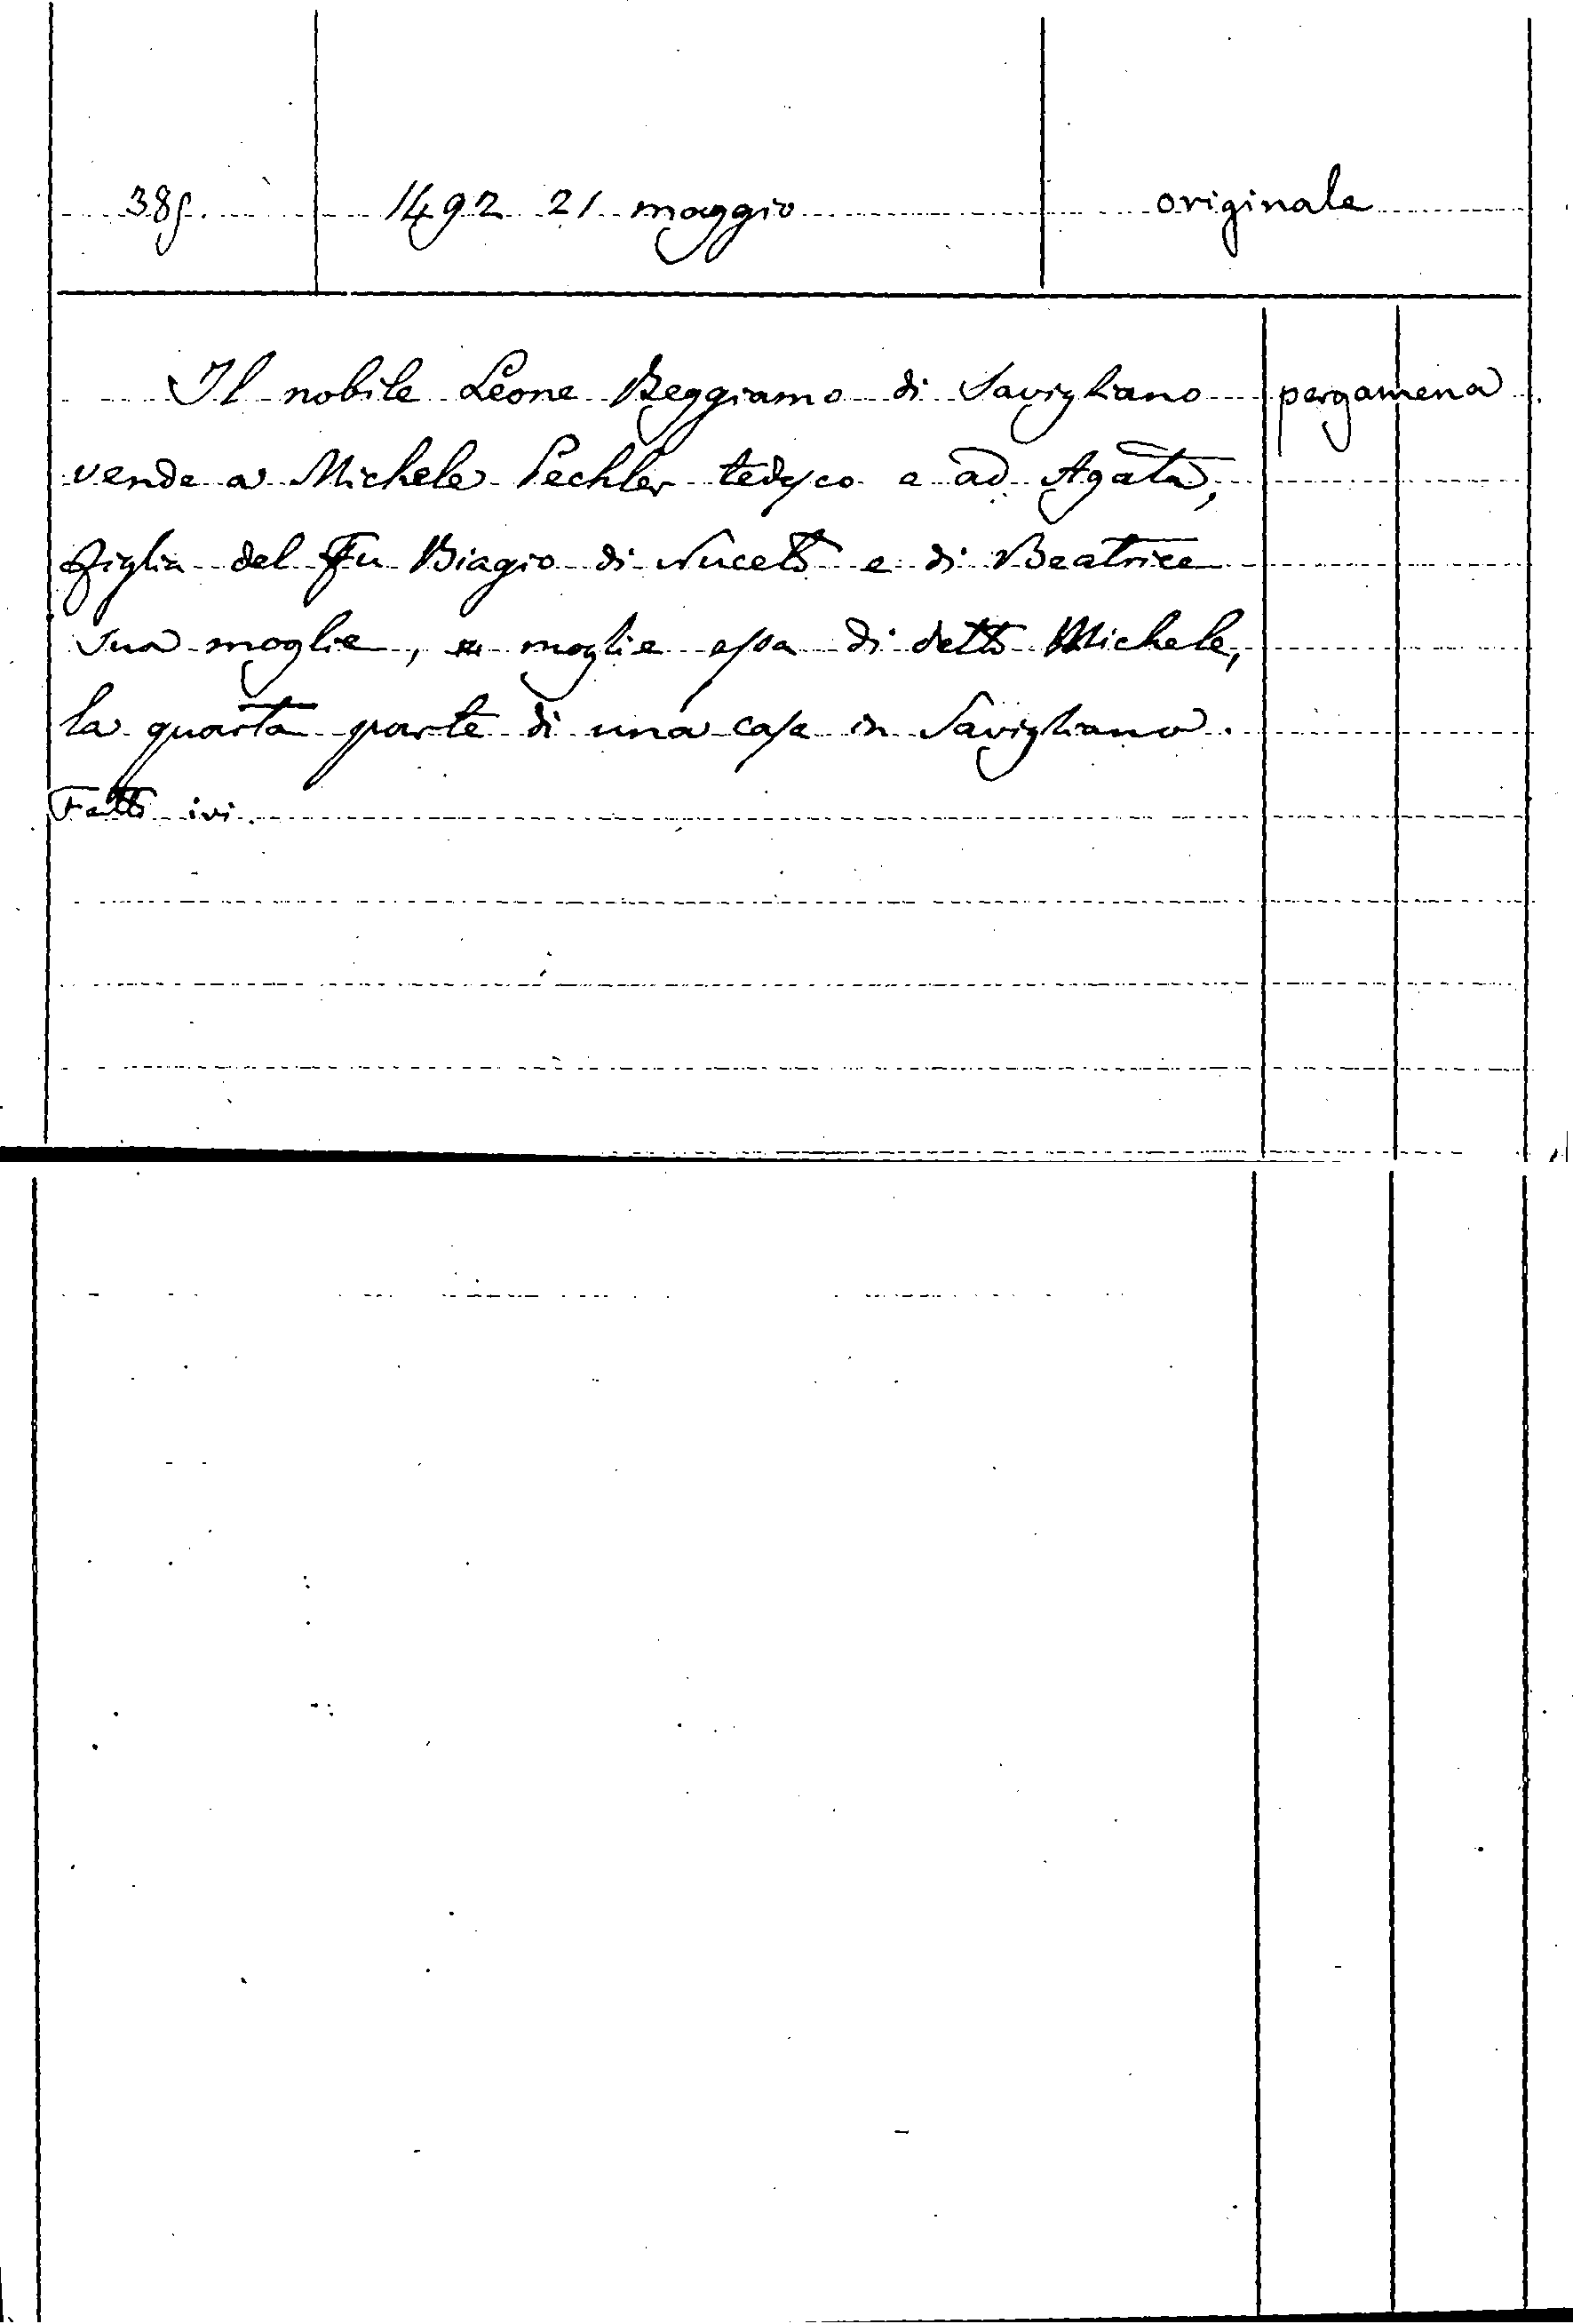 385. 1492 21 maggio originale
Il nobile Leone Beggiamo di Savigliano pergamena
vende a Michele Pechler tedesco e ad Agata,
figlia del fu Biagio di Nuceto e di Beatrice
sua moglie, moglie essa di detto Michele,
la quarta parte di una casa in Savigliano.
Fatto ivi.